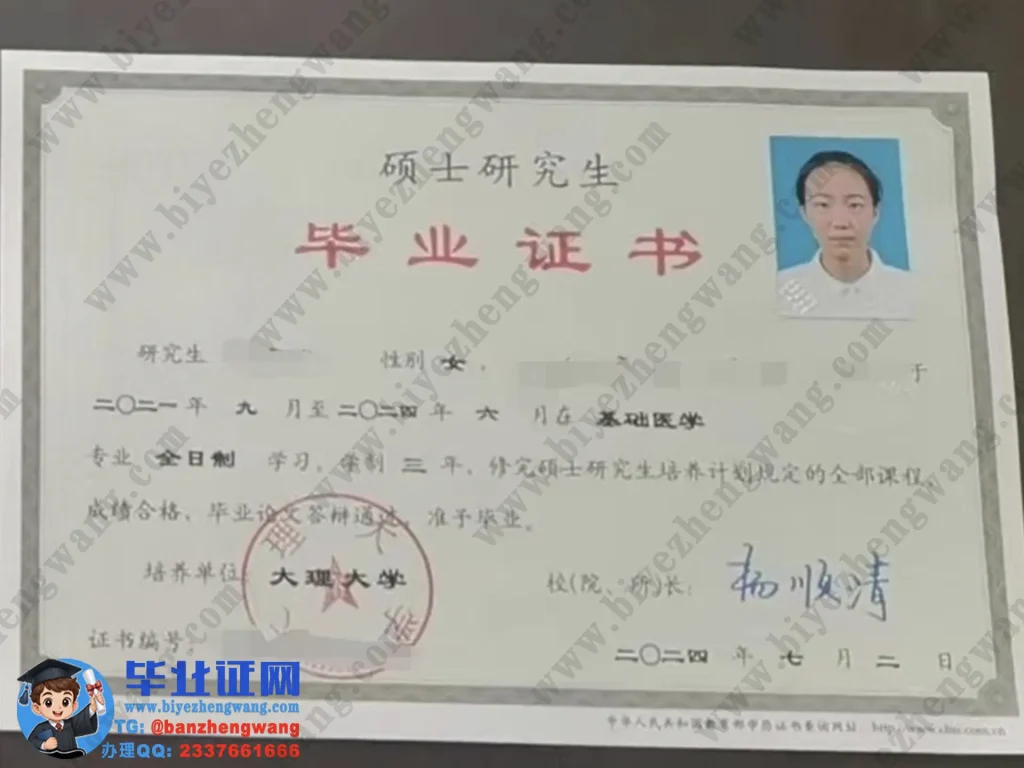 硕士研究生
毕业证书
研究生 性别 女， 于
二〇二一年 九 月至二〇二四年 六 月在 基础医学
专业 全日制 学习，学制 三 年，修完硕士研究生培养计划规定的全部课程，
成绩合格，毕业论文答辩通过，准予毕业。
培养单位：大理大学
校(院、所)长：杨顺清
证书编号：
二〇二四 年 七 月 二 日
毕业证网
www.biyezhengwang.com
TG: @banzhengwang
办理QQ: 2337661666
中华人民共和国教育部学历证书查询网站 http://www.chsi.com.cn
www.biyezhengwang.com